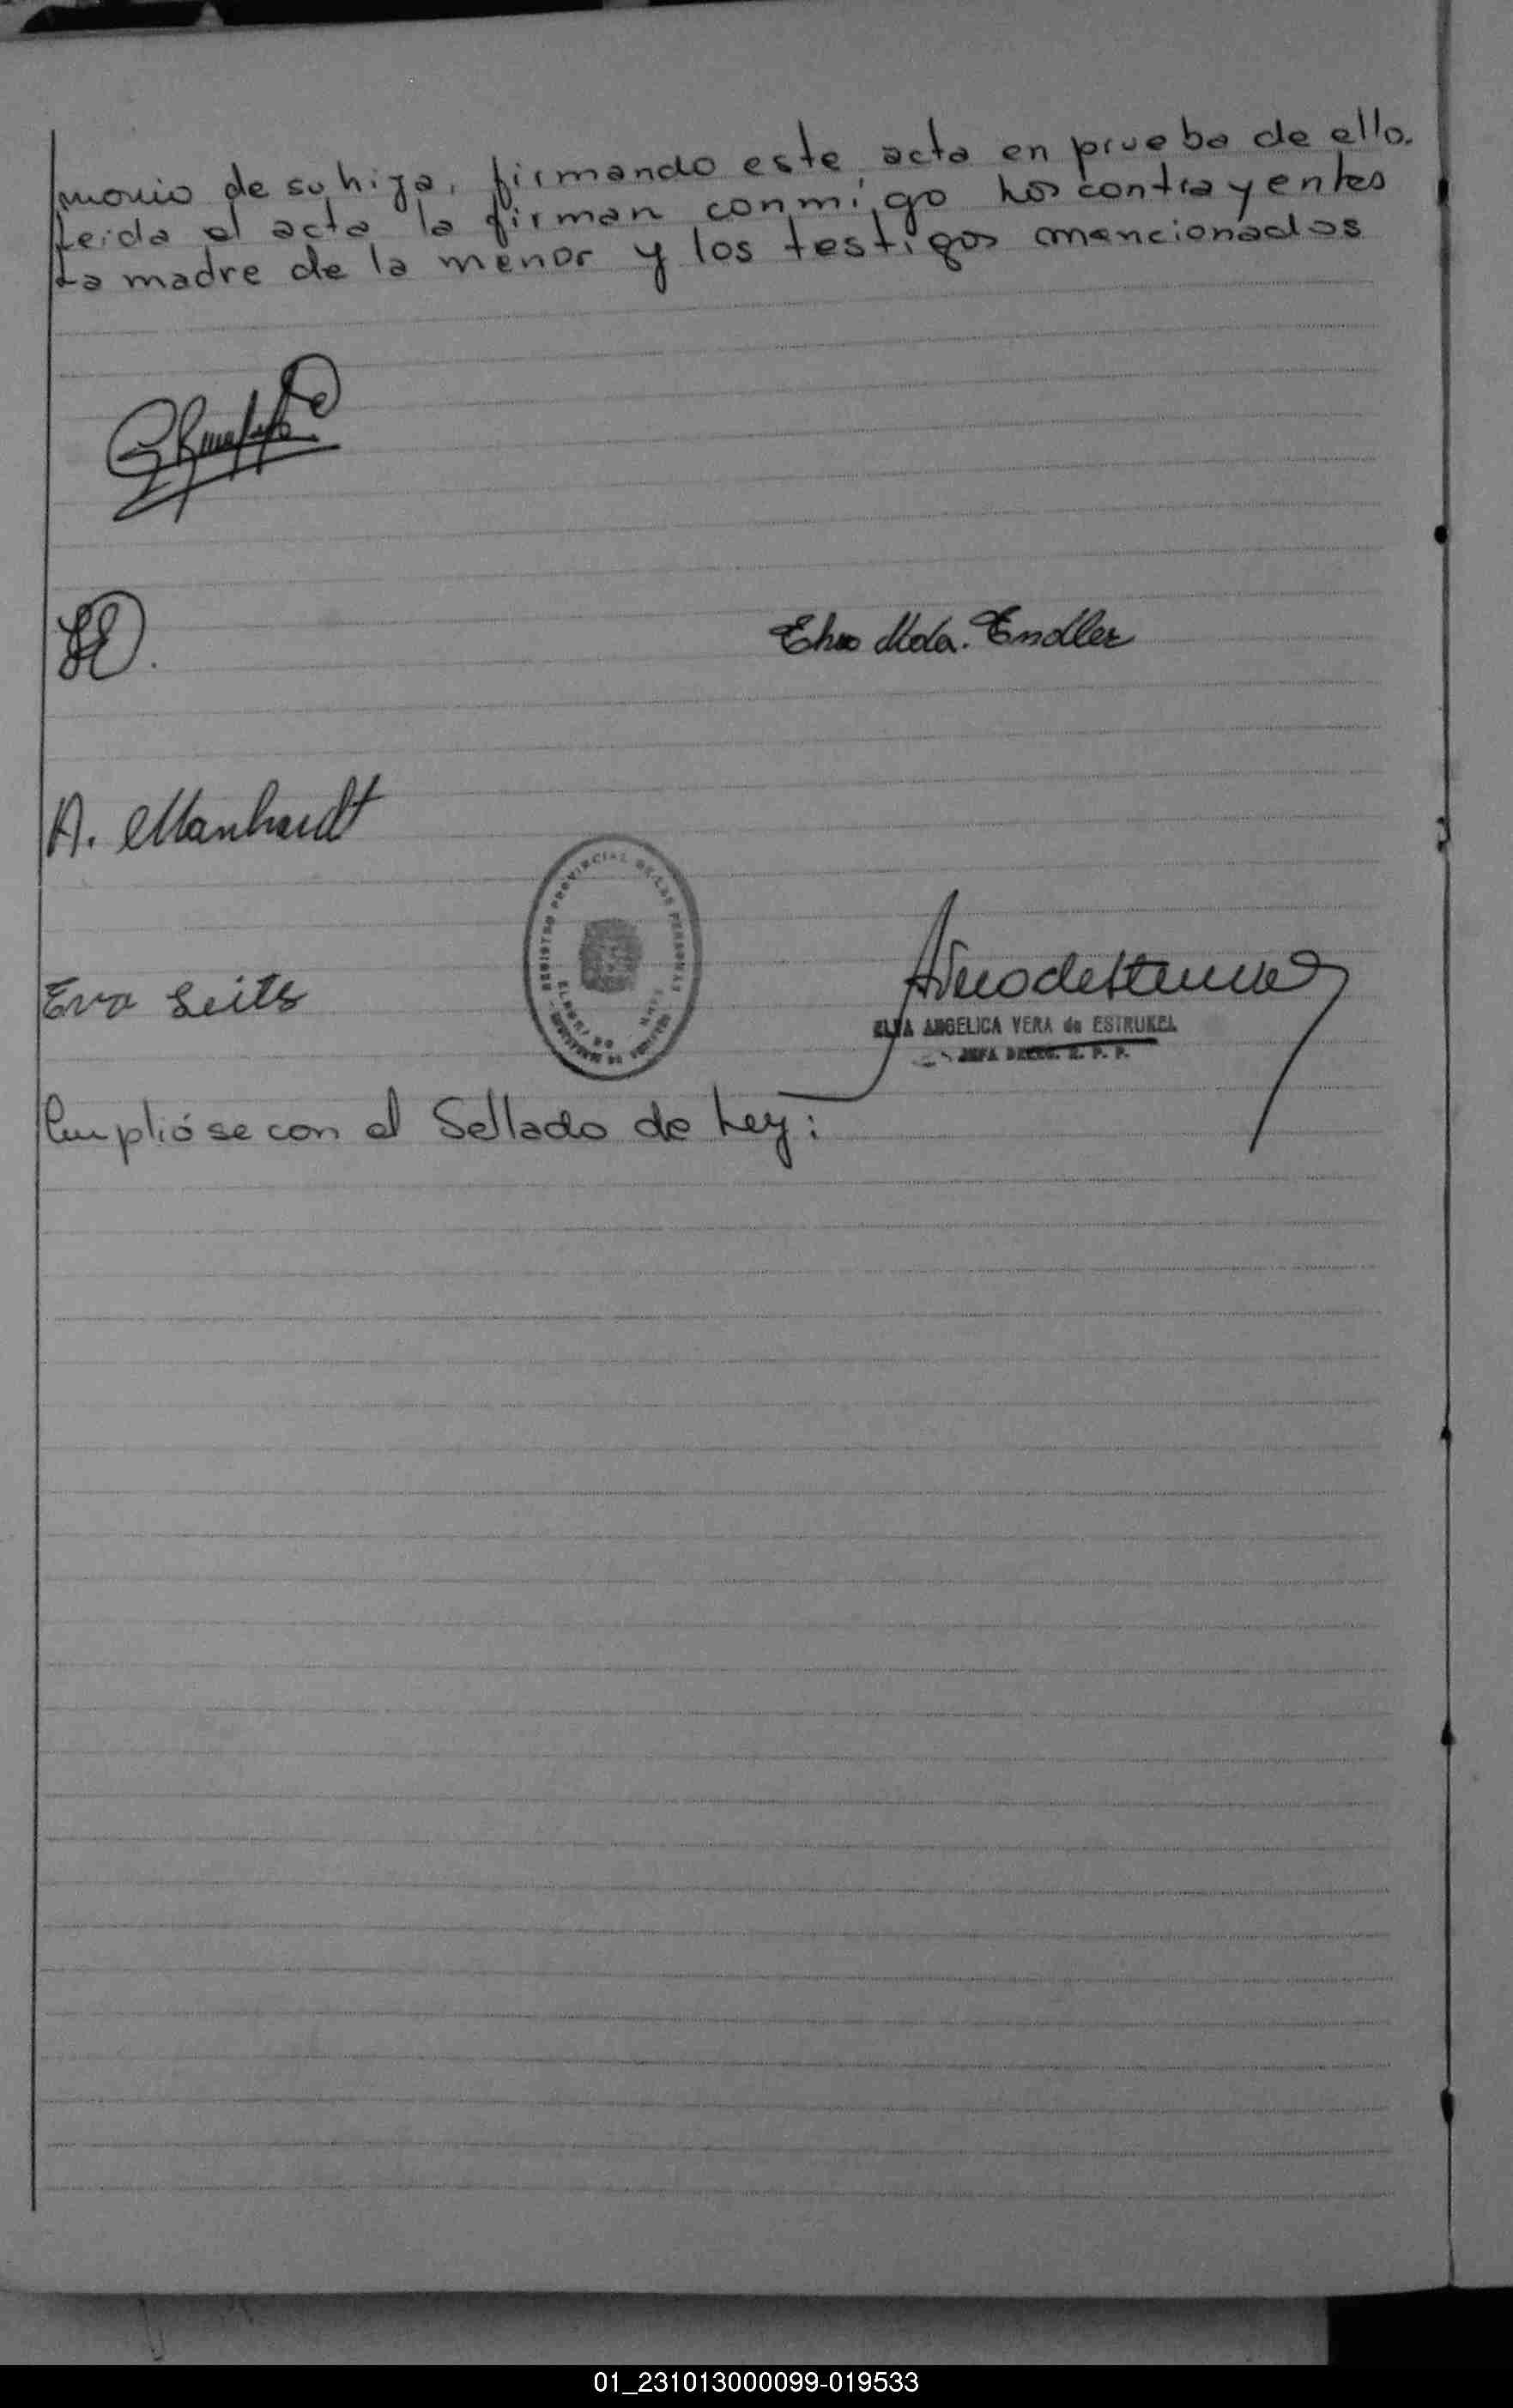 monio de su hija, firmando este acta en prueba de ello.
Leida el acta la firman conmigo los contrayentes
La madre de la menor y los testigos mencionados
Vda. Endler
A. Manhardt
REGISTRO PROVINCIAL DE LAS PERSONAS
Eva Seits
ANGELICA VERA de ESTRUKEL
JEFA DELEG. R. P. P.
Cumplióse con el Sellado de Ley:
01_231013000099-019533